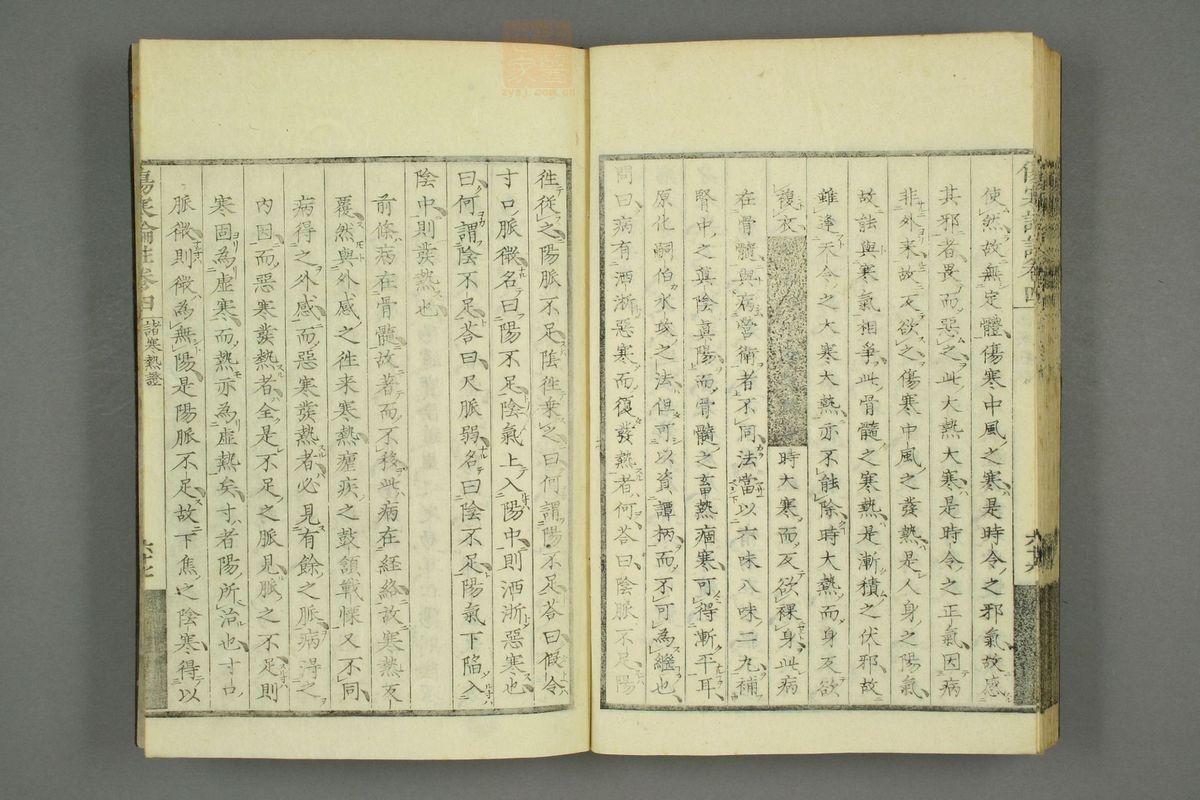 使然故無定體傷寒中風之寒是時令之邪氣故感
其邪者畏而惡之此大熱大寒是時令之正氣因病
非外来故反欲之傷寒中風之發熱是人身之陽氣
故能與寒氣相爭此骨髓之寒熱是漸積之伏邪故
雖逢天令之大寒大熱亦不能除時大熱而身反欲
複衣時大寒而反欲裸身此病
在骨髓與病營衛者不同法當以六味八味二丸補
腎中之真陰真陽而骨髓之畜熱痼寒可得漸平耳
原化嗣伯水攻之法但可以資譚柄而不可為繼也
問曰病有洒淅惡寒而復發熱者何荅曰陰脈不足陽
往從之陽脈不足陰往乗之曰何謂陽不足荅曰假令
寸口脈微名曰陽不足陰氣上入陽中則洒淅惡寒也
曰何謂陰不足荅曰尺脈弱名曰陰不足陽氣下陷入
陰中則發熱也
前條病在骨髓故者而不移此病在経絡故寒熱反
覆然與外感之往来寒熱瘧疾之鼓頷戰慄又不同
病得之外感而惡寒發熱者必見有餘之脈病得之
内因而惡寒發熱者全是不足之脈見脈之不足則
寒固為虚寒而熱亦為虚熱矣寸者陽所治也寸口
脈微則微為無陽是陽脈不足故下焦之陰寒得以
傷寒論註卷四
諸寒熱證
六十七